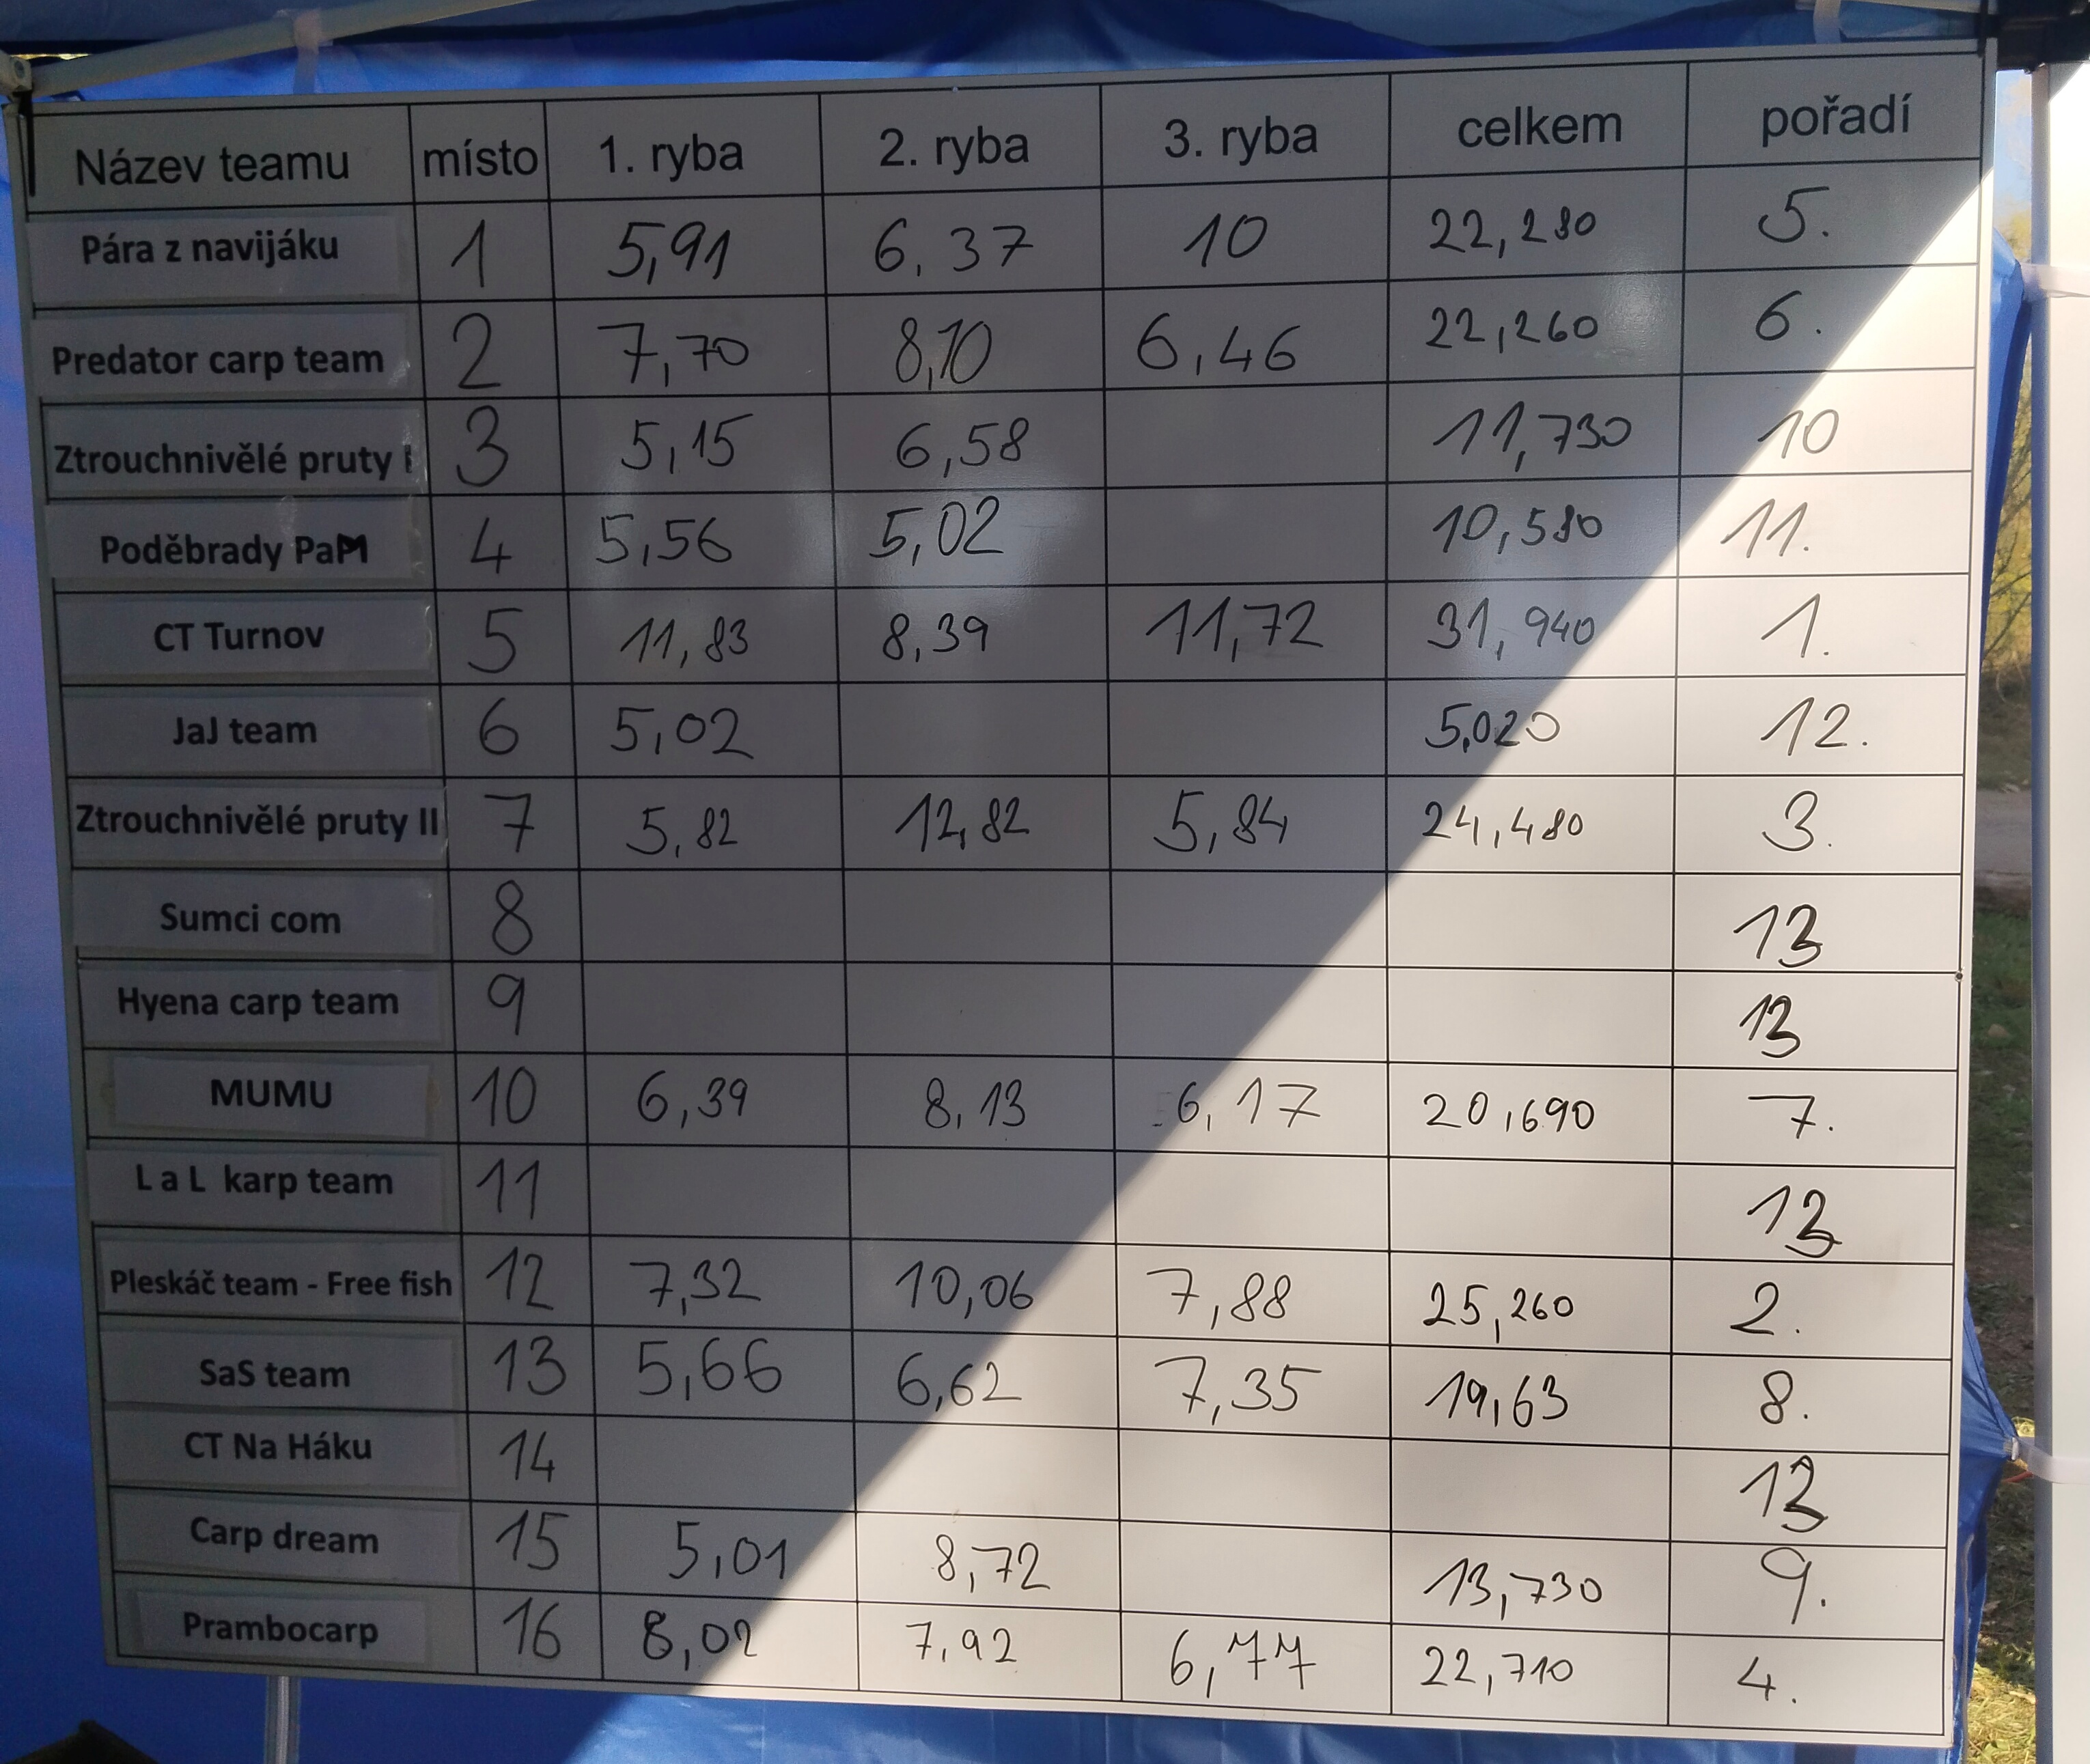 Název teamu místo 1. ryba 2. ryba 3. ryba celkem pořadí
Pára z navijáku 1 5,91 6,37 10 22,280 5.
Predator carp team 2 7,70 8,10 6,46 22,260 6.
Ztrouchnivělé pruty I 3 5,15 6,58 11,730 10
Poděbrady PaM 4 5,56 5,02 10,580 11.
CT Turnov 5 11,83 8,39 11,72 31,940 1.
JaJ team 6 5,02 5,020 12.
Ztrouchnivělé pruty II 7 5,82 12,82 5,84 24,480 3.
Sumci com 8 13
Hyena carp team 9 13
MUMU 10 6,39 8,13 6,17 20,690 7.
L a L karp team 11 13
Pleskáč team - Free fish 12 7,32 10,06 7,88 25,260 2.
SaS team 13 5,66 6,62 7,35 19,63 8.
CT Na Háku 14 13
Carp dream 15 5,01 8,72 13,730 9.
Prambocarp 16 8,02 7,92 6,77 22,710 4.